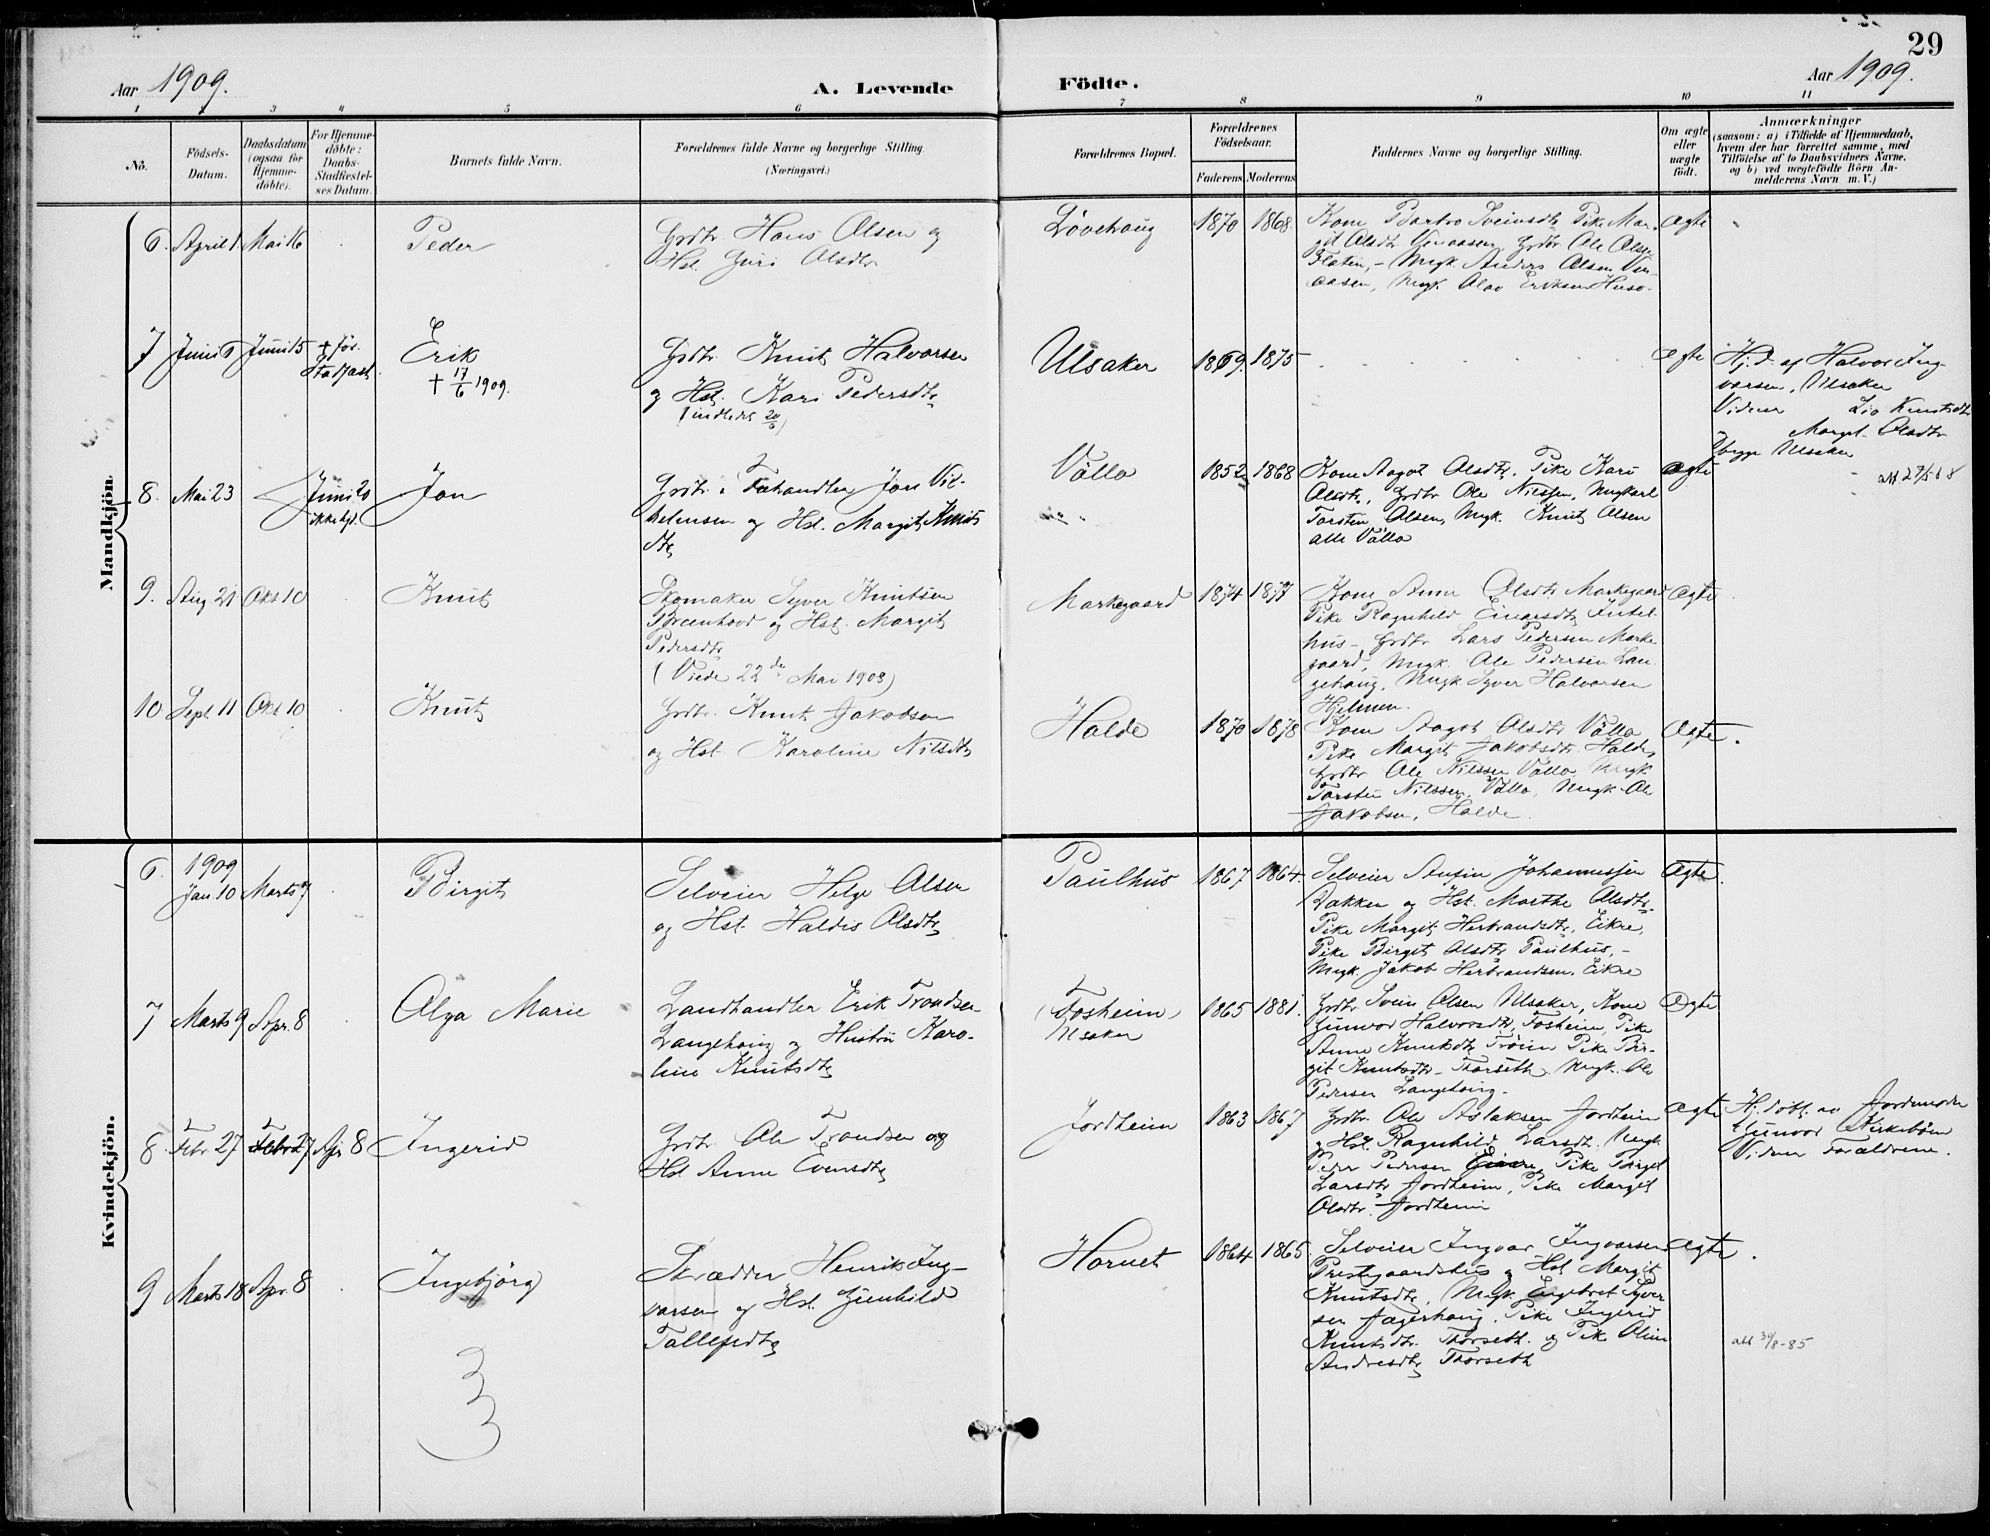 29
Aar 1909.
A. Levende
Födte.
Aar 1909.
1 2 3 4 5 6 7 8 9 10 11
No.
Födsels-
Datum.
Daabsdatum
(ogsaa for
Hjemme-
döbte).
For Hjemme-
döbte:
Daabs-
Stadfæstel-
ses Datum.
Barnets fulde Navn.
Forældrenes fulde Navne og borgerlige Stilling
(Næringsvei.)
Forældrenes Bopæl.
Forældrenes
Födselsaar.
Faderens Moderens
Faddernes Navne og borgerlige Stilling.
Om ægte
eller
uægte
födt.
Anmærkninger
(saasom: a) i Tilfælde af Hjemmedaab,
hvem der har forrettet samme, med
Tilföielse af to Daabsvidners Navne,
og b) ved uægtefödte Börn An-
melderens Navn m. V.)
Mandkjön.
6. April 1 Mai 16
Peder
Grdbr. Hans Olsen og
Hst. Guri Olsdtr
Lövehaug
1870 1868.
Kone Barbro Sveinsdtr, Pike Mar-
git Olsdtr Venaasen, Grdbr Ole Olsen
Slaatin, - Ungk. Anders Olsen Ven-
aasen, Ungk. Olav Eriksen Huso.
Ægte
7 Juni 6 Juni 15 + för
Stadfæst.
Erik
+ 17/6 1909.
Grdbr. Knut Halvorsen
og Hst. Kari Pedersdtr
(indledet 20/6)
Ulsaker
1869. 1875
Ægte
Hj.d. af Halvor Ing-
varsen, Ulsaker
Vidner Liv Knutsdtr
Margit Olsdtr
begge Ulsaker
8. Mai 23 Juni 20
ikke hjd.
Jon
Grdbr. & Fehandler Jon Vil-
helmsen og Hst. Margit Knuts
dtr
Völlo
1852 1868
Kone Aagot Olsdtr, Pike Kari
Olsdtr, Grdbr Ole Nilssen, Ungkarl
Torstein Olsen, Ungk. Knut Olsen
alle Völlo
Ægte
att 27/5 68
9. Aug 21 Okt 10
Knut
Skomaker Syver Knutsen
Breenhovd og Hst. Margit
Pedersdtr
(Viede 22de Mai 1908)
Markegaard
1874 1877
Kone Anne Olsdtr Markegaard
Pike Ragnhild Einarsdtr
hus, Grdbr Lars Pedersen Marke
gaard, Ungk. Ole Pedersen Lan
gehaug, Ungk Syver Halvorsen
Hjelmen.
Ægte
10. Sept 11 Okt 10
Knut
Grdbr. Knut Jakobsen
og Hst. Karoline Nilsdtr
Halde
1870 1878
Kone Aagot Olsdtr Völlo
Pike Margit Jakobsdtr Halde,
Grdbr Ole Nilssen Völlo, Ungk
Torstein Nilssen, Völlo, Ungk Ole
Jakobsen, Halde.
Ægte.
Kvindekjön.
6. 1909
Jan 10 Marts 7
Birgit
Selveier Helge Olsen
og Hst. Haldis Olsdtr
Paulhus
1867 1864.
Selveier Johannessen
Bakken og Hst. Marthe Olsdtr.
Pike Margit Herbrandsdtr, Eikre,
Pike Birgit Olsdtr Paulhus, -
Ungk Jakob Herbrandsen, Eikre
Ægte.
7 Marts 9 Apr. 8
Olga Marie
Landhandler Erik Trondsen
Langehaug og Hustru Karo-
line Knutsdtr
(Fosheim)
Ulsaker
1865 1881.
Grdbr. Svein Olsen Ulsaker, Kone
Gunvor Halvorsdtr, Fosheim, Pike
Anne Knutsdtr Tröim Pike Bir-
git Knutsdtr Thorseth, Ungk. Ole
Pedersen Langehaug.
Ægte
8 Febr 27 Febr 27 Apr 8
Ingerid
Grdbr. Ole Trondsen og
Hst. Anne Evensdtr
Jordheim
1863 1867
Grdbr. Ole Aslaksen Jordheim
og Hst Ragnhild Larsdtr, Ungk.
Peder Pedersen Pike Birgit
Larsdtr Jordheim, Pike Margit
Olsdtr. Jordheim
Ægte
Hj.döbt. av Jordmoder
Gunvor Kirkeböen
Vidner Forældrene.
9 Marts 18 Apr. 8
Ingebjörg
Skrædder Henrik Ing-
varsen og Hst. Gunhild
Tollefsdtr
Hornet
1864 1865.
Selveier Ingvar Ingvarsen
Prestegaardshus og Hst Margit
Knutsdtr, Ungk. Engebret Syver
sen Fagerhaug, Pike Ingerid
Knutsdtr. Thorseth. og Pike Oline
Andresdtr Thorseth
Ægte.
att 30/8-85